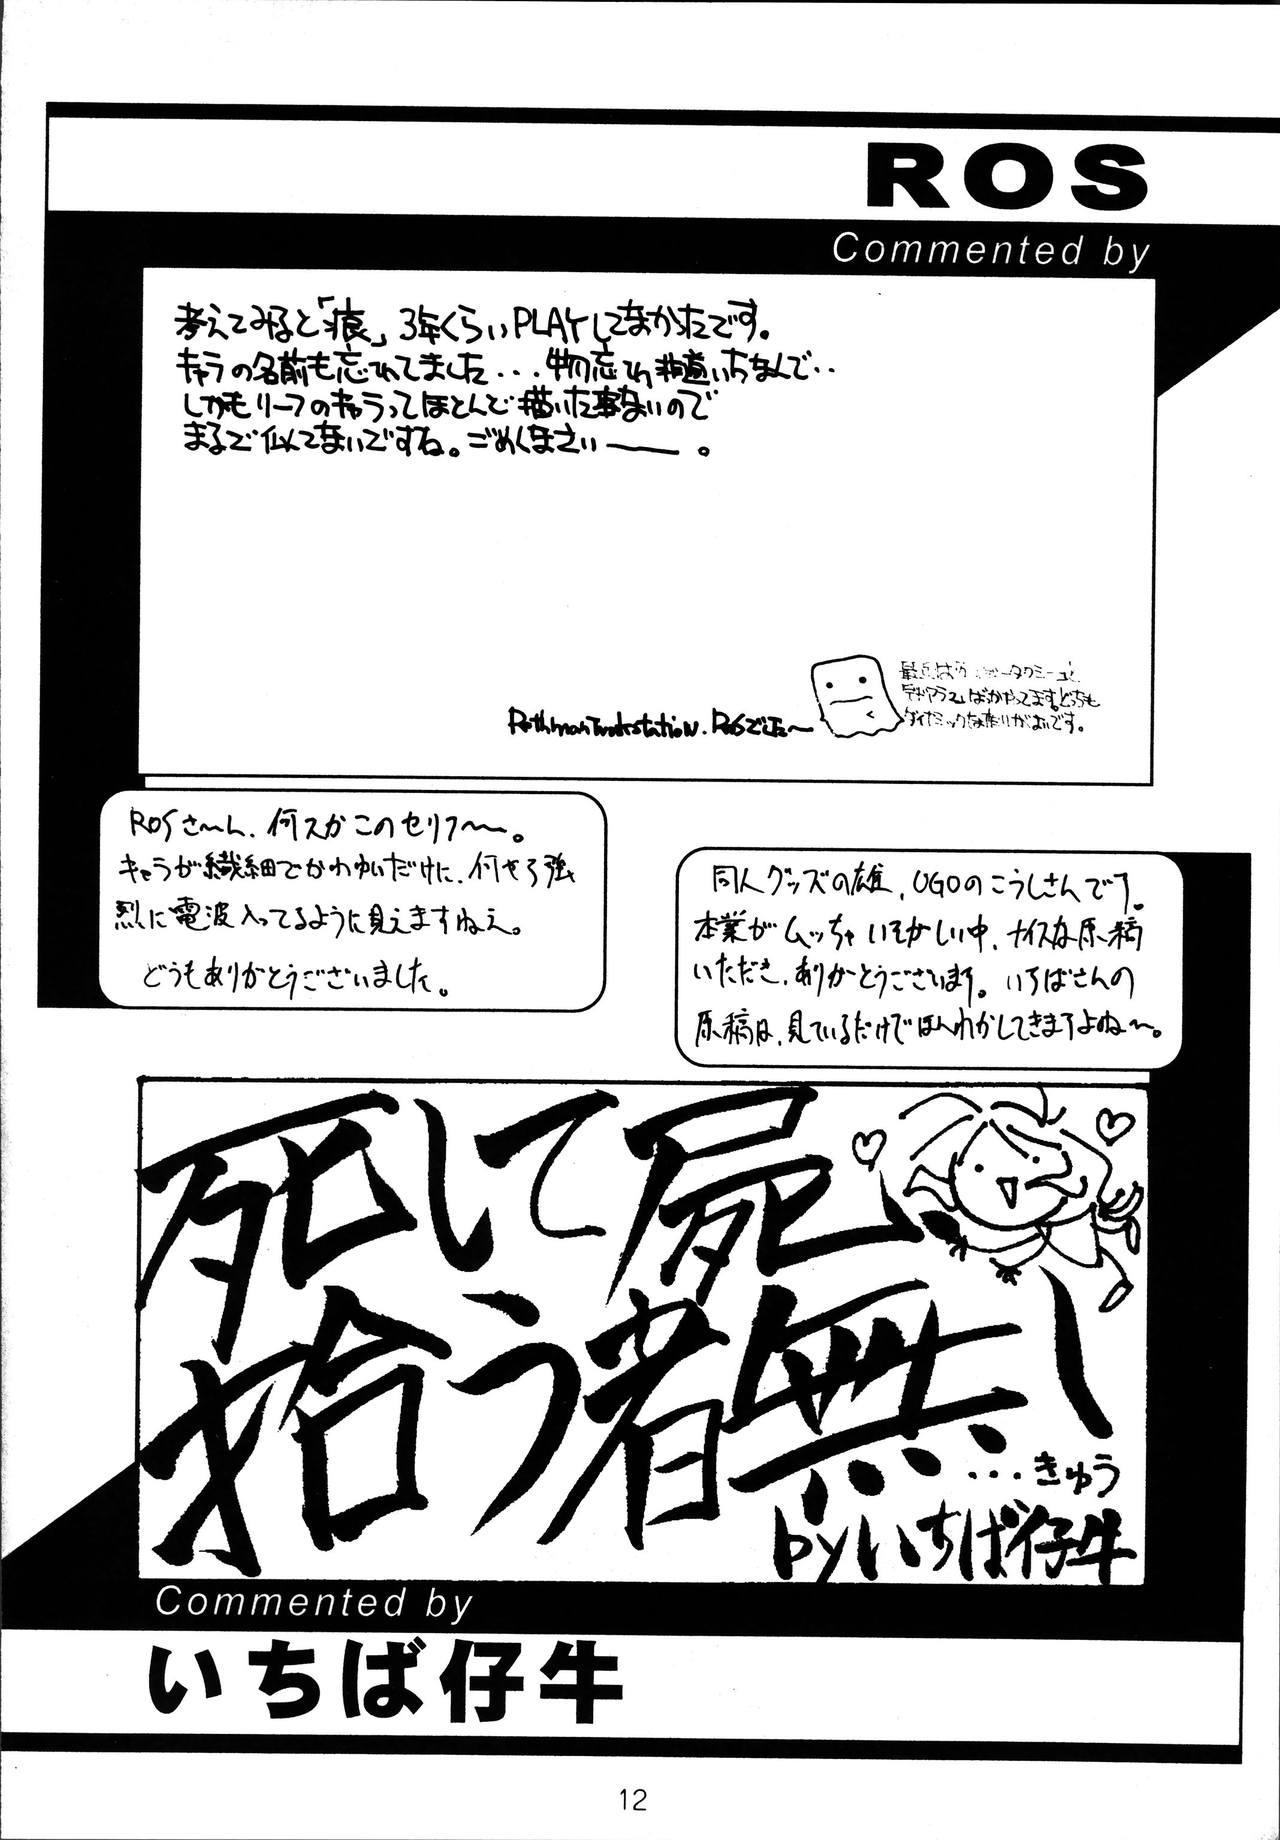 ROS
Commented by
考えてみると「痕」、3年くらいPLAYしてなかったです。
キャラの名前も忘れてました...物忘れ街道いちなんで..
しかもリーフのキャラってほとんど描いた事ないので
まるで似てないですね。ごめんなさいーー。
ばかやってます。どっちも
ダイナミックな走りがよいです。
ROSでした〜
ROSさ〜ん、何スかこのセリフ〜〜。
キャラが繊細でかわゆいだけに、何せろ強
烈に電波入ってるように見えますねえ。
どうもありがとうございました。
同人グッズの雄、UGOのこうしさんです。
本業がムッちゃいそがしい中、ナイスな原稿
いただき、ありがとうございます。いちばさんの
原稿は、見ているだけでほんわかしてきますよね〜。
死して屍
拾う者無し
...きゅう
byいちば仔牛
Commented by
いちば仔牛
12